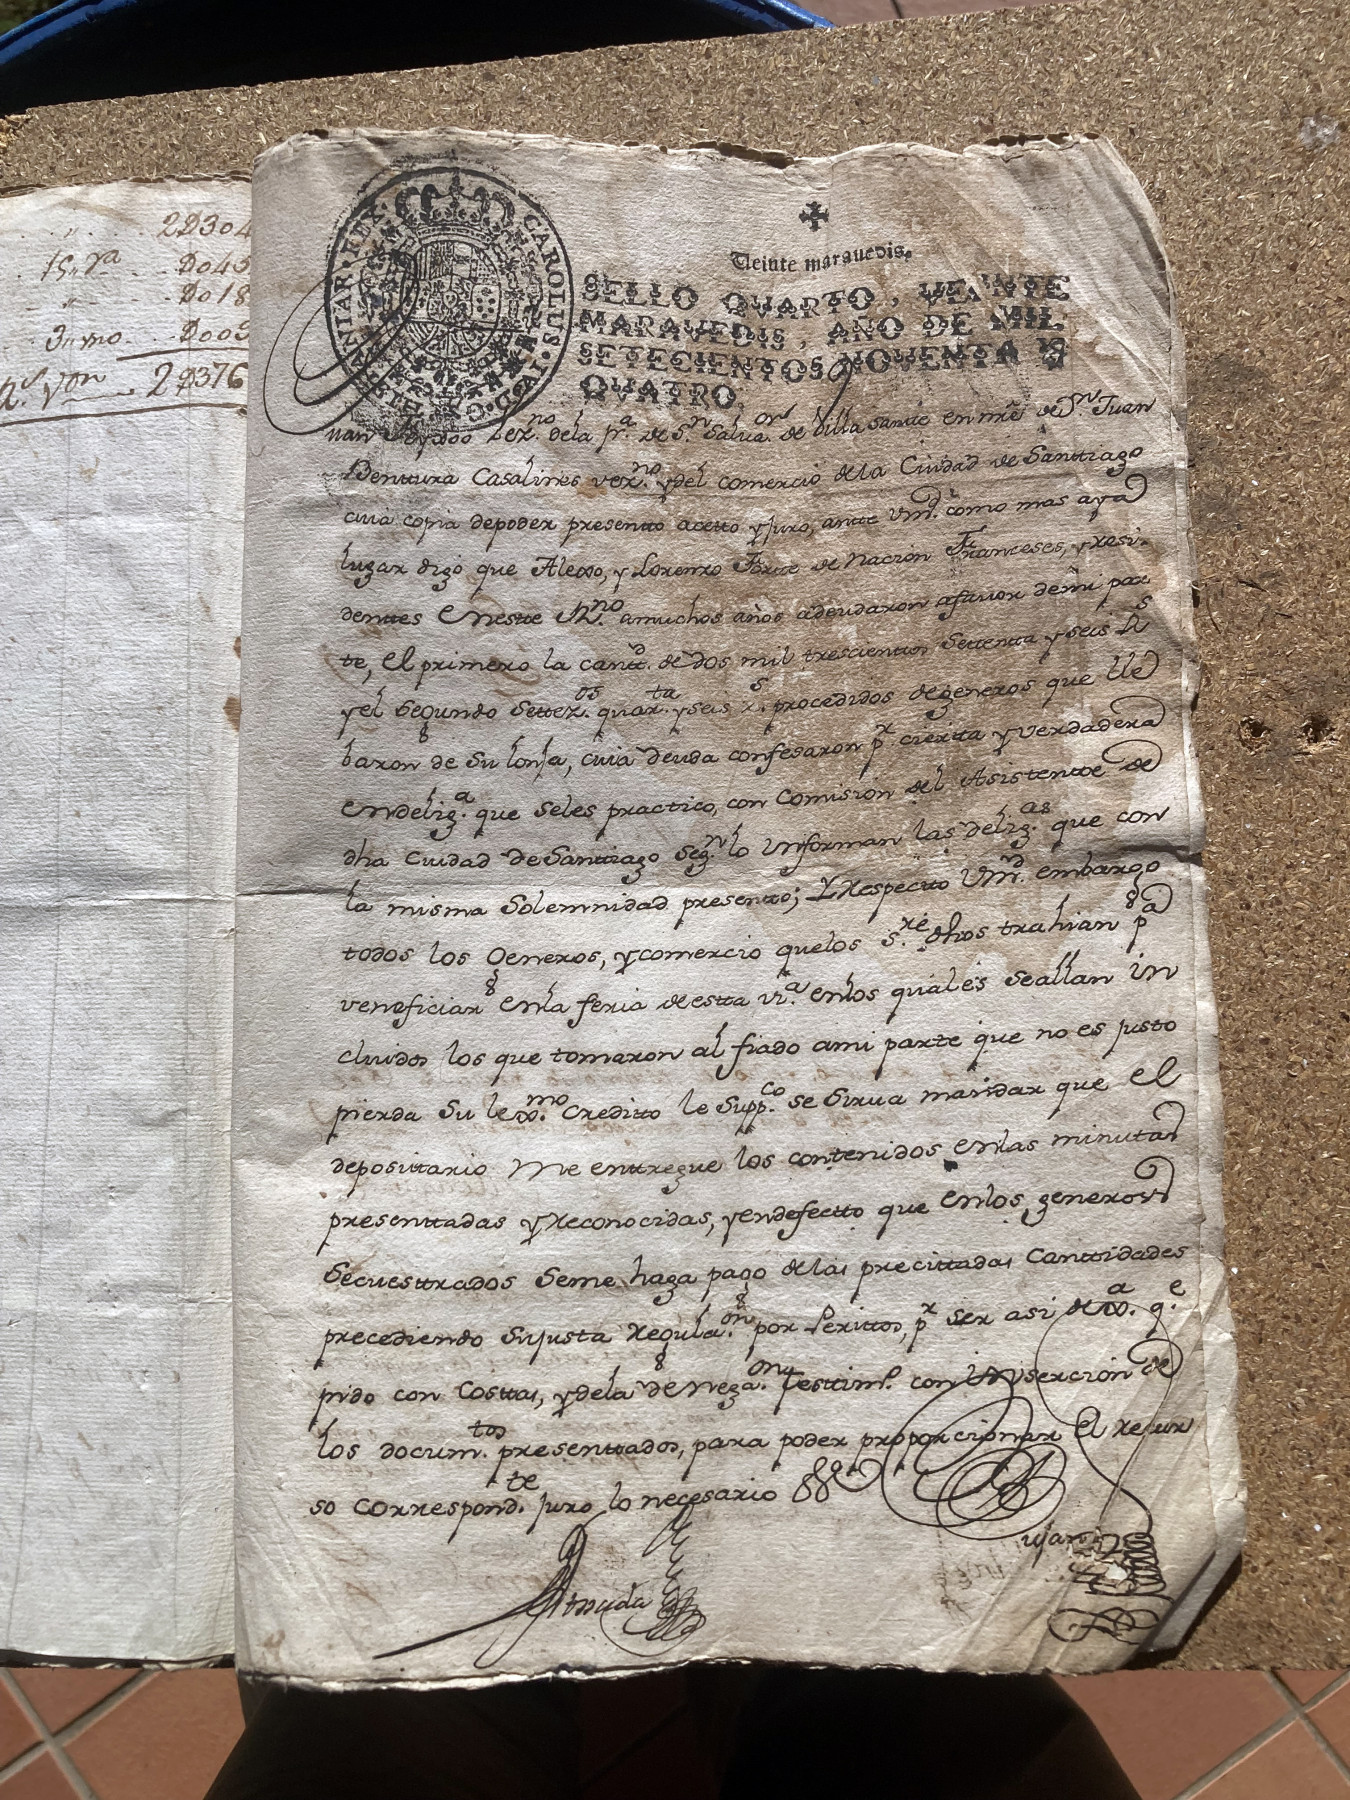 2D304
15„ra D045
„ D018
3„mo D005
von 2D376
CAROLUS · IV · D · G · HISPANIAR · REX ·
Veinte maravedis.
SELLO QVARTO, VEINTE
MARAVEDIS, AÑO DE MIL
SETECIENTOS NOVENTA Y
QVATRO.
Juan de la p.a de S.n Salva.or de Villa sante en nre de Dn. Juan
Benttura Casalines vez.no y del comercio de la Ciudad de Santtiago
cuia copia de poder presentto acetto y juro, antte Vmd. como mas aya
lugar digo que Alexo, y Lorenzo de Nación Franceses, y resi-
denttes en este R.no a muchos años adeudaron afavor de mi par
te, el primero la cantt.d de dos mil trescientos settentta y seis r.s
y el segundo settez.os quar.ta y seis r.s procedidos de generos que lle
baron de su lonja, cuia deuda confesaron pr. cierta y verdadera
en delig.a que seles practico, con comision del Asistentte de
dha Ciudad de Santtiago seg.n lo Ynforman las delig.as que con
la misma solemnidad presentto; Y Respectto Vmd. embargo
todos los Generos, y comercio que los s.re dhos trahian pa
veneficiar en la feria de estta vi.a en los quales se allan in
cluidos los que tomaron al fiado a mi parte que no es justo
pierda su lexmo. creditto le supp.co se sirva mandar que el
depositario me enttregue los contenidos en las minutas
presenttadas y reconocidas, y en defectto que en los generos
secuesttrados seme haga pago de las precittadas canttidades
precediendo su justa regula.on por Perittos, pr. ser asi q.e
pido con costtas, y de la denega.on testtim.o con la Ynsercion de
los docum.tos presenttados, para poder proporcionar el recur
so correspond.te juro lo necesario